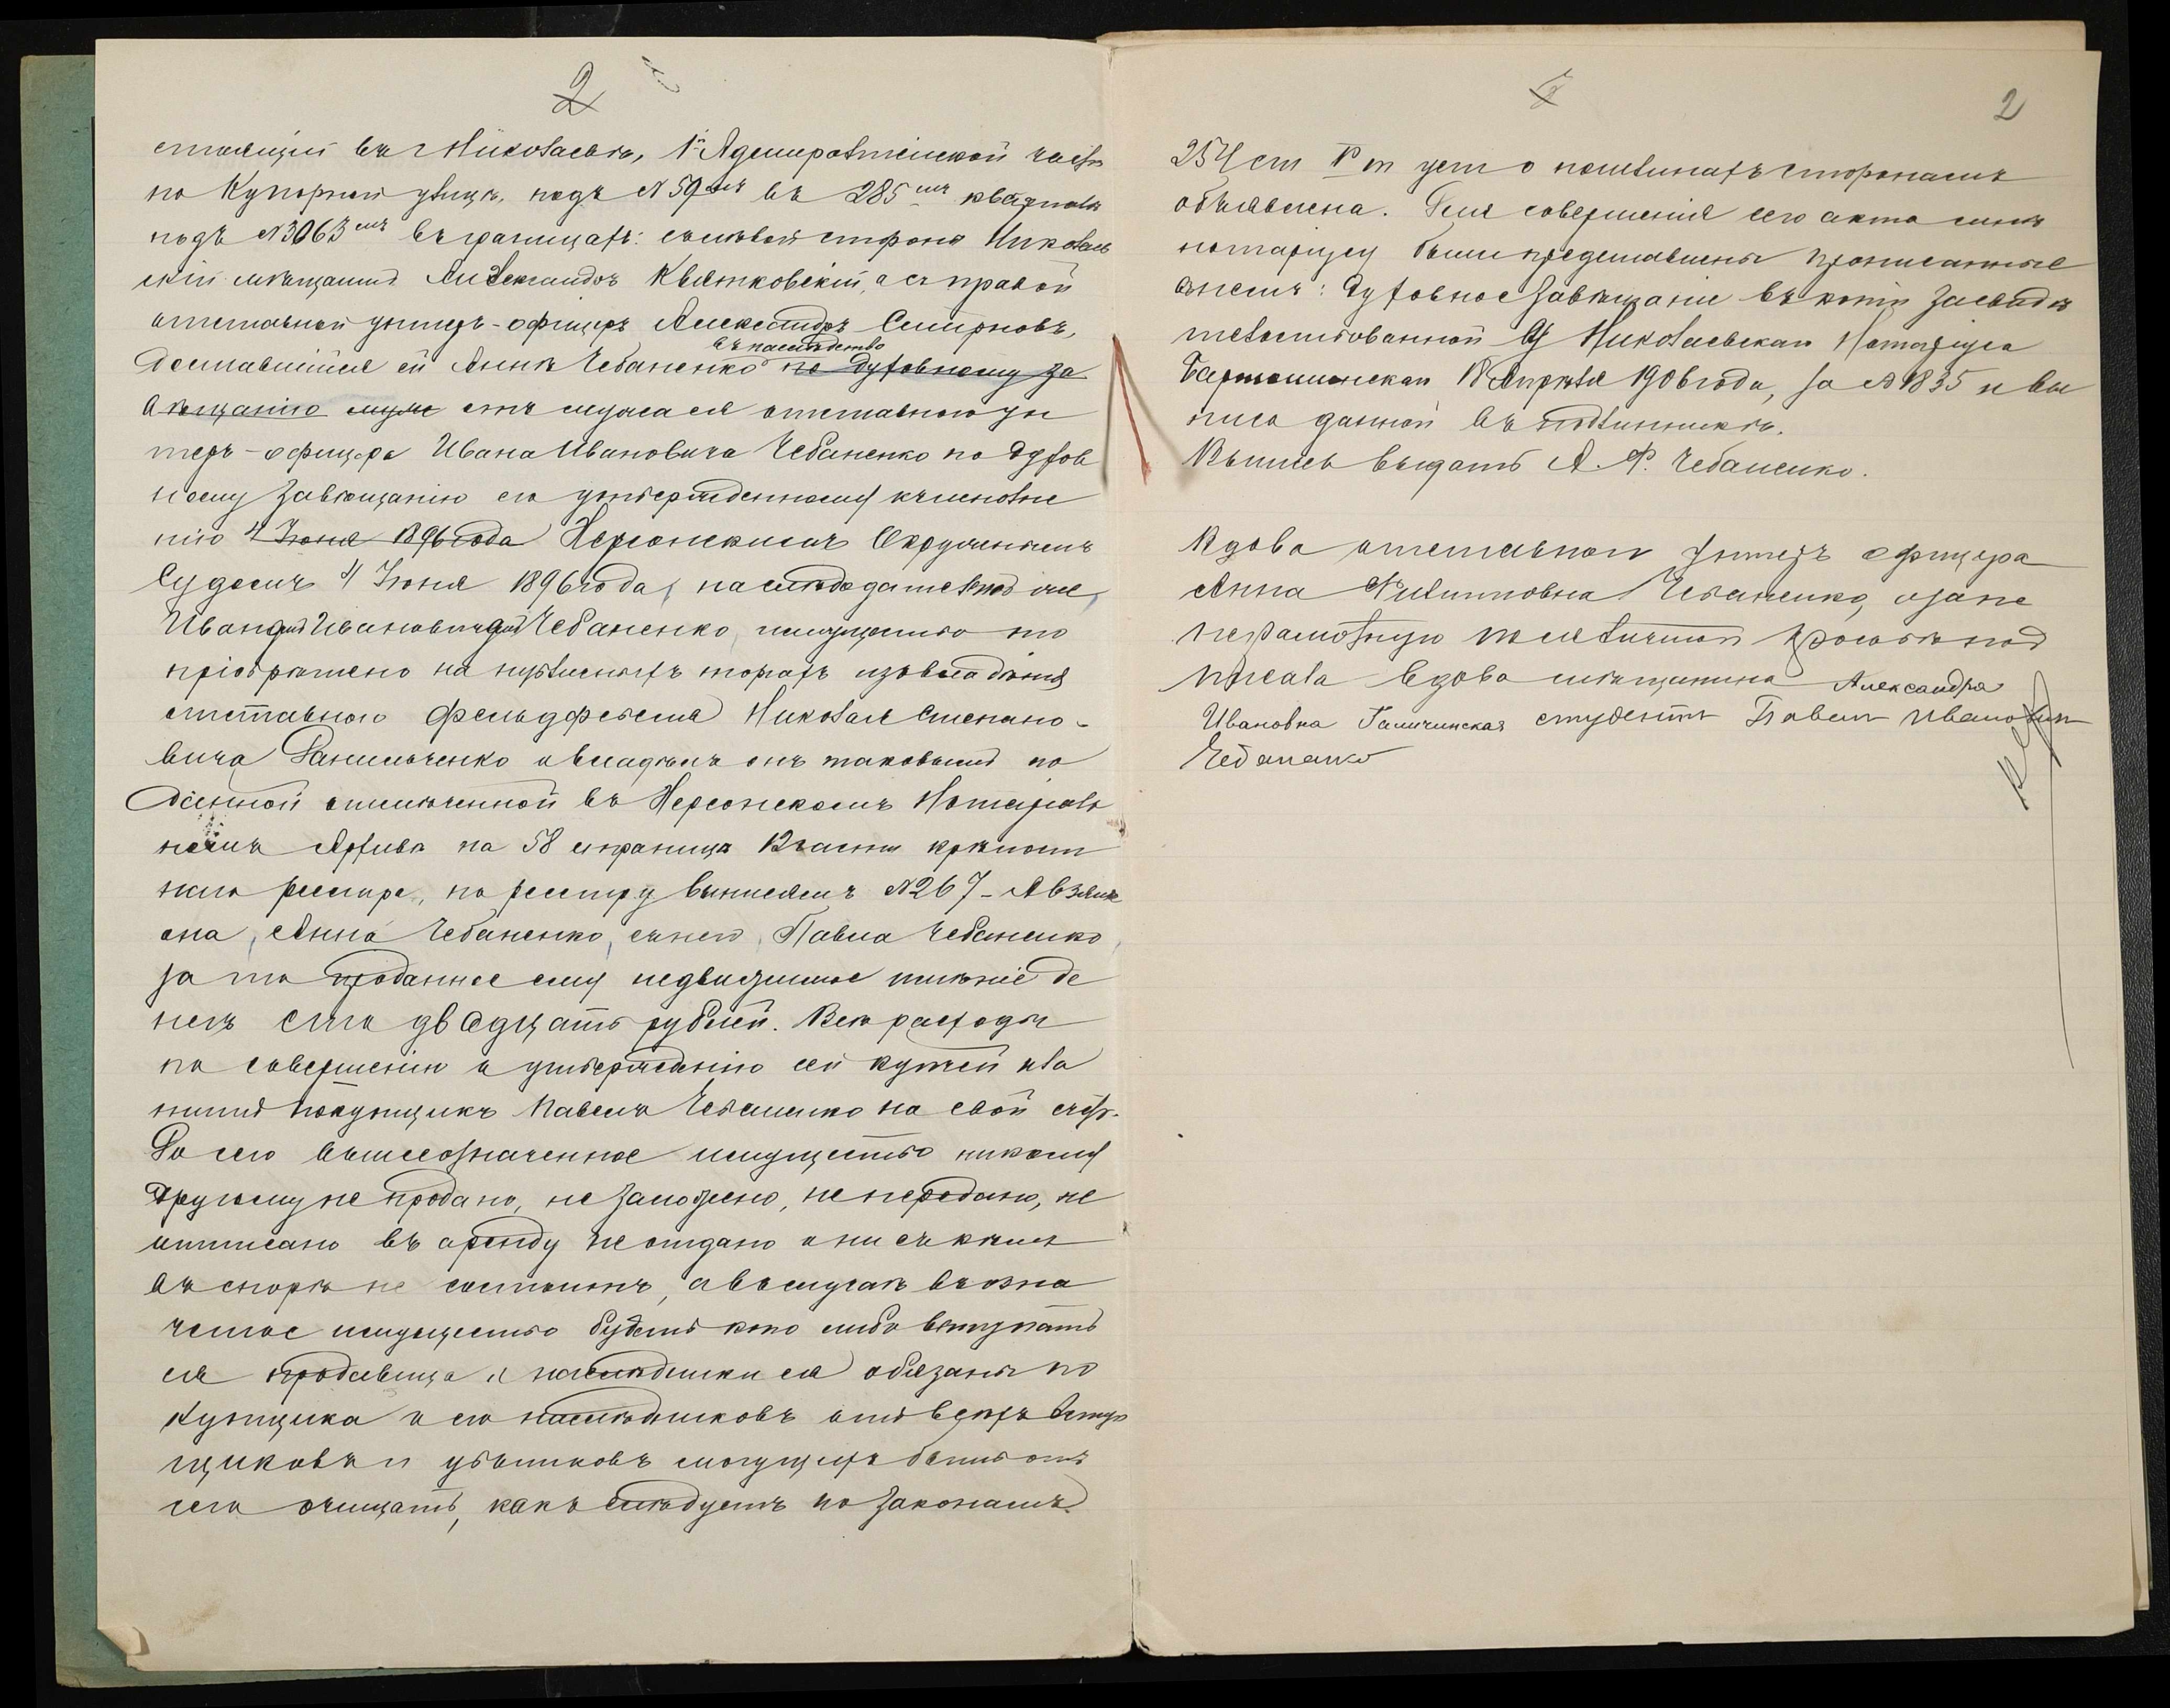 2
стоящій въ г Николаевѣ, 1й Адмиралтейской части
по Купорной улицѣ, подъ №59мъ въ 285мъ кварталѣ
подъ №3063мъ въ границахъ: съ лѣвой стороны Николаев
скій мѣщанинъ Александръ Квятковскій, а съ правой
отставной унтеръ-офицеръ Александръ Смирновъ,
въ наслѣдство
доставшійся ей Аннѣ Чебаненко по духовному за
вѣщанію мужа отъ мужа ея отставного ун
теръ-офицера Ивана Ивановича Чебаненко по духов
ному завѣщанію его утвержденному къ исполне
нію 4 Іюня 1896 года Херсонскимъ Окружнымъ
Судомъ 4 Іюня 1896 года, наслѣдодателю же
Ивану Ивановичу Чебаненко, имущество то
пріобрѣтено на публичныхъ торгахъ изъ владѣнія
отставного фельдфебеля Николая Степано-
вича Данильченко и владѣлъ онъ таковымъ по
данной отмѣченной въ Херсонскомъ Нотаріаль
номъ Архивѣ на 58 страницѣ части крѣпост
ного реестра, по реестру выписямъ №267 - А взяла
она, Анна Чебаненко, съ него, Павла Чебаненко
за то проданное ему недвижимое имѣніе де
негъ сто двадцать рублей. Всѣ расходы
по совершенію и утвержденію сей купчей при
нялъ покупщикъ Павелъ Чебаненко на свой счетъ.
До сего вышеозначенное имущество никому
другому не продано, не заложено, не передано, не
отписано въ аренду не отдано и ни съ кѣмъ
въ спорѣ не состоитъ, а въ случаѣ въ озна
ченное имущество будетъ кто либо вступать
ся продавица и наслѣдники ея обязаны по
купщика и его наслѣдниковъ отъ всѣхъ вступ
щиковъ и убытковъ могущихъ быть отъ
сего очищать, какъ слѣдуетъ по законамъ.
2
254 ст V т уст о пошлинахъ сторонамъ
объявлена. Для совершенія сего акта мнѣ
нотаріусу были представлены прописанные
въ немъ: духовное завѣщаніе въ копіи засвидѣ
тельствованной у Николаевскаго Нотаріуса
18 Апрѣля 1906 года, за №1835 и вы
пись данной въ подлинникѣ.
Выпись выдать А. Ф. Чебаненко.
Вдова отставного Унтеръ офицера
Анна Филипповна Чебаненко, а за не
неграмотную по личной просьбѣ под
писала вдова мѣщанина Александра
Ивановна Галичинская студентъ Павелъ Ивановичъ
Чебаненко